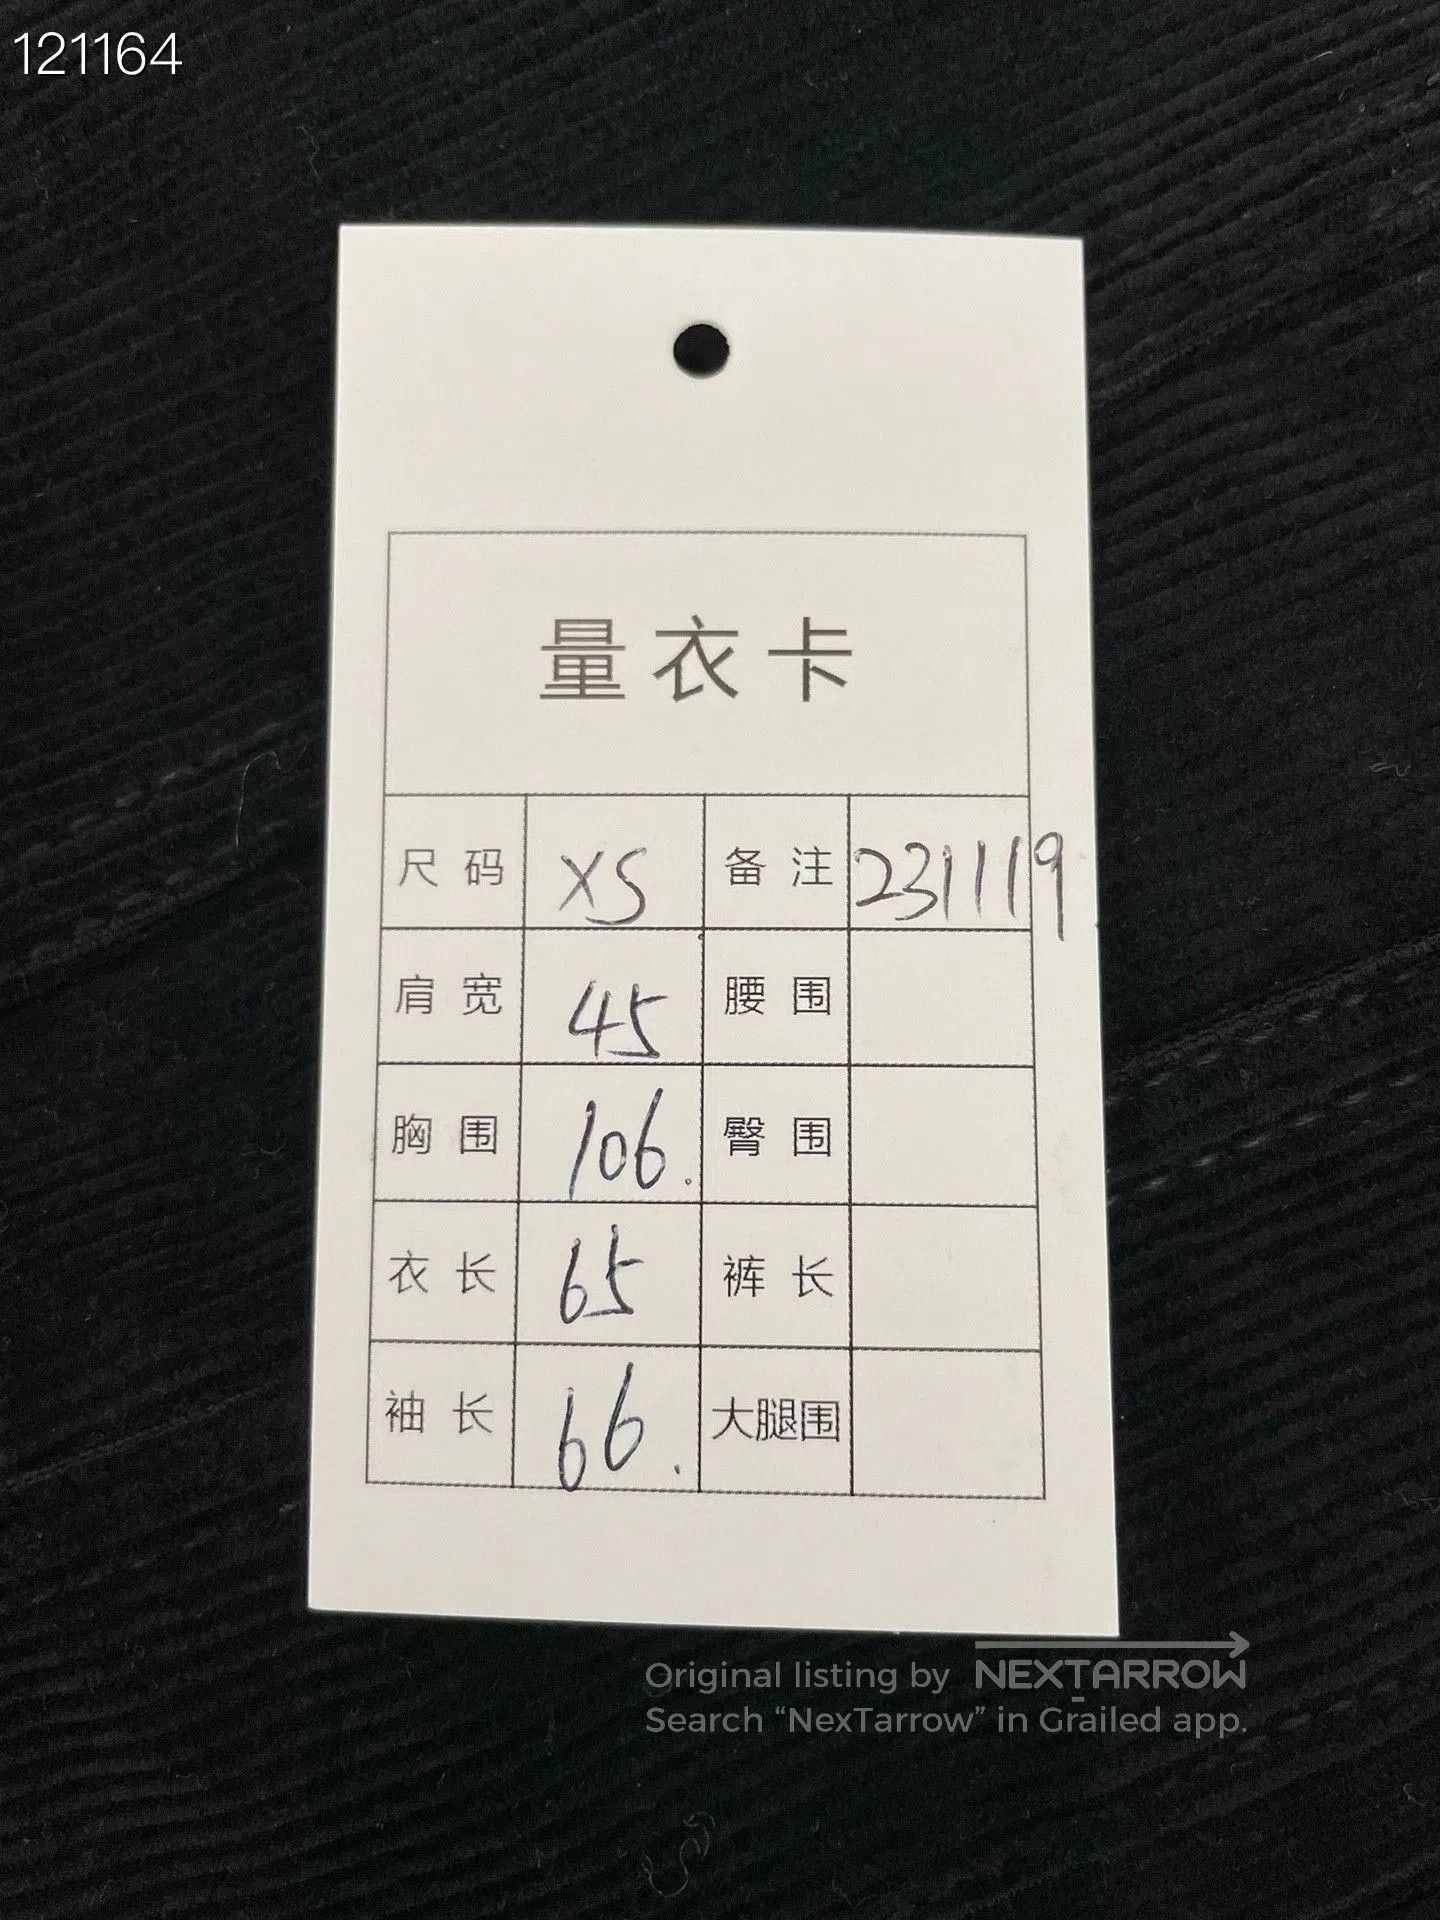 121164
量衣卡
尺码 XS 备注 231119
肩宽 45 腰围
胸围 106. 臀围
衣长 65 裤长
袖长 66. 大腿围
Original listing by NEXTARROW
Search “NexTarrow” in Grailed app.